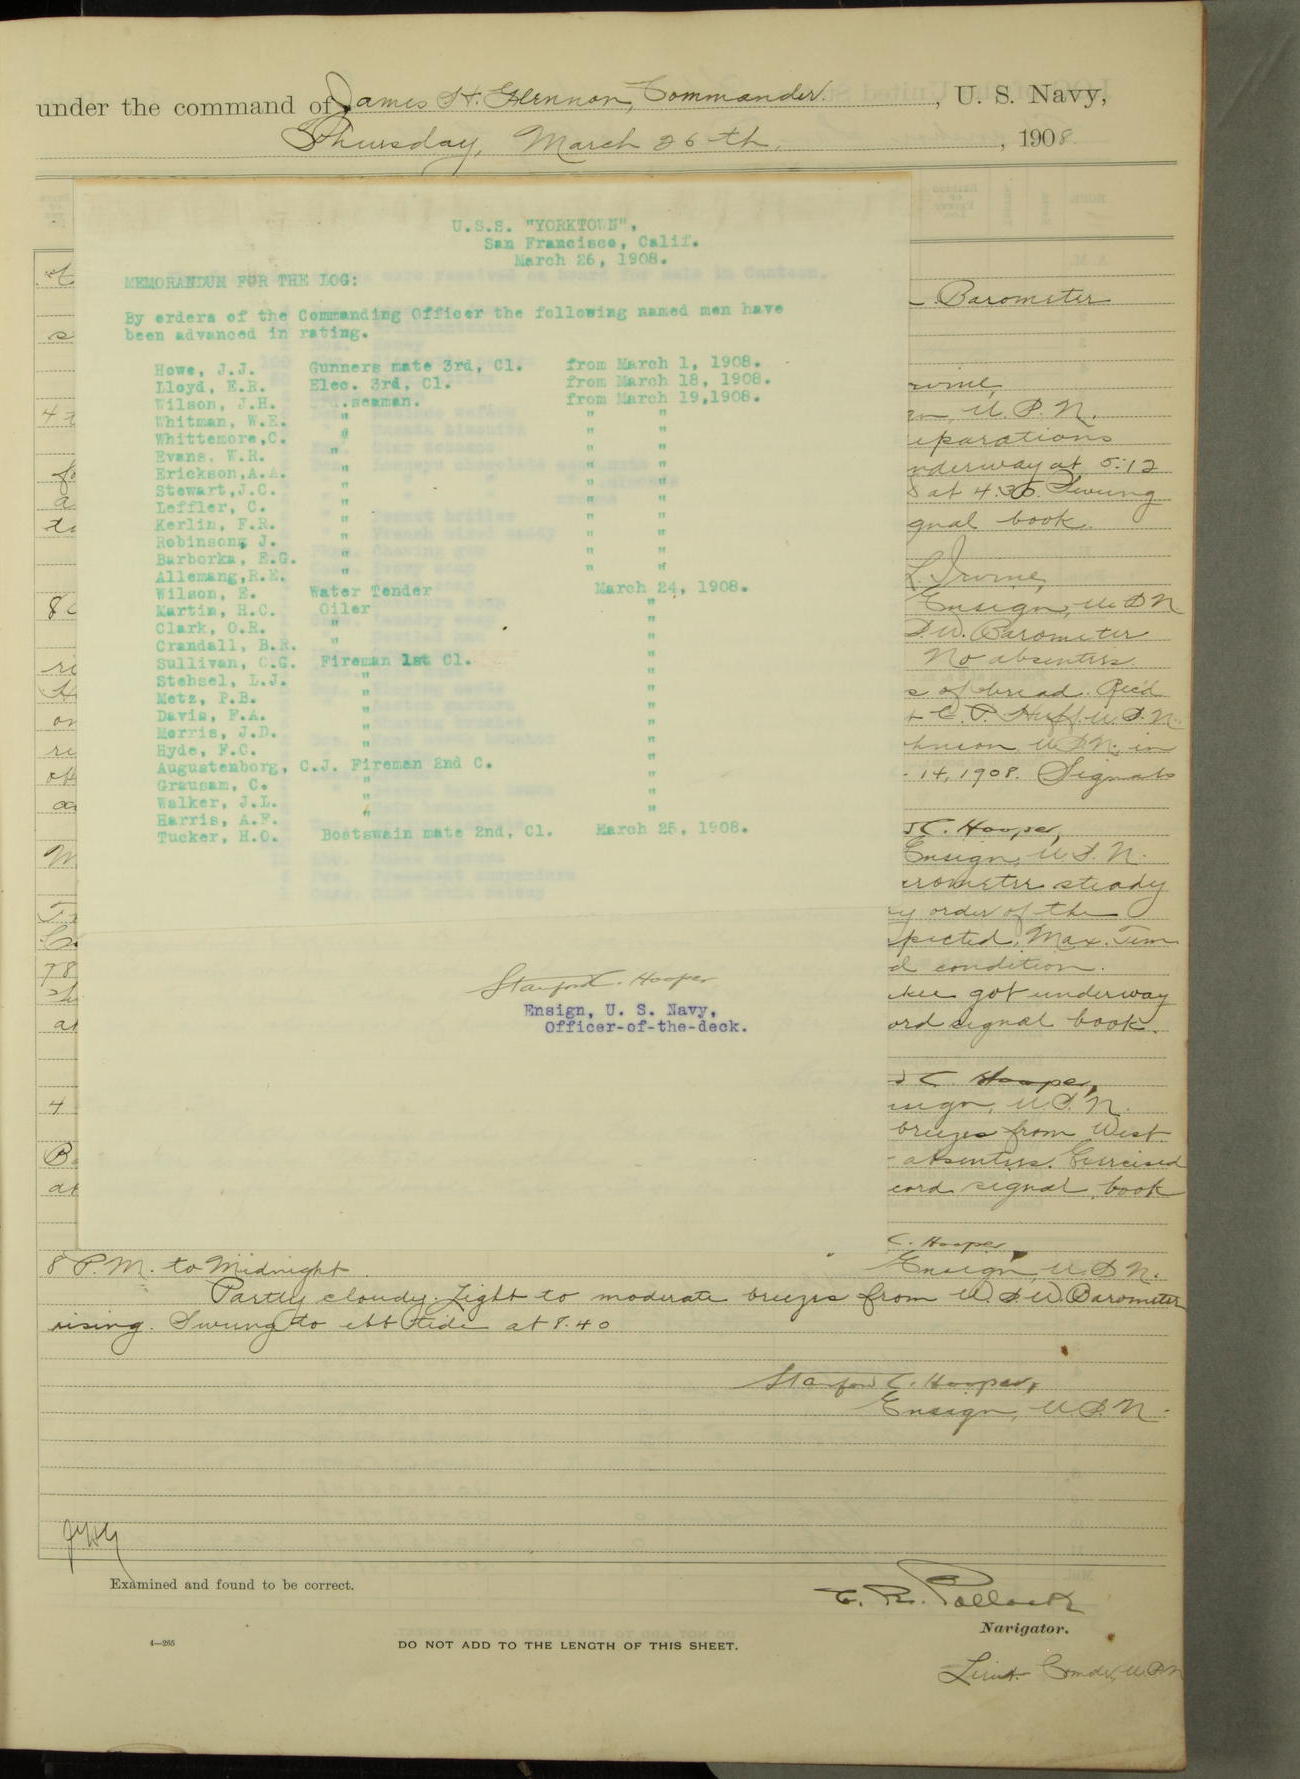 under the command of James H. Glennon, Commander., U. S. Navy,
Thursday, March 26th, 1908.
U.S.S. "YORKTOWN",
San Francisco, Calif.
March 26, 1908.
MEMORANDUM FOR THE LOG:
By orders of the Commanding Officer the following named men have
been advanced in rating.
Howe, J.J. Gunners mate 3rd, Cl. from March 1, 1908.
Lloyd, E.R. Elec. 3rd, Cl. from March 18, 1908.
Wilson, J.H. seaman. from March 19,1908.
Whitman, W.E. " " "
Whittemore,C. " " "
Evans, W.R. " " "
Erickson,A.A. " " "
Stewart,J.C. " " "
Leffler, C. " " "
Kerlin, F.R. " " "
Robinson, J. " " "
Barborka, E.G. " " "
Allemang,R.E. " " "
Wilson, E. Water Tender March 24, 1908.
Martin, H.C. Oiler "
Clark, O.R. " "
Crandall, B.R. " "
Sullivan, C.G. Fireman 1st Cl. "
Stehsel, L.J. " "
Metz, P.B. " "
Davis, F.A. " "
Morris, J.D. " "
Hyde, F.C. " "
Augustenborg, C.J. Fireman 2nd C. "
Grausam, C. " "
Walker, J.L. " "
Harris, A.F. " "
Tucker, H.O. Boatswain mate 2nd, Cl. March 25, 1908.
Stanford C. Hooper
Ensign, U. S. Navy,
Officer-of-the-deck.
Barometer
U. S. N.
underway at 5:12
at 4:35. Swung
signal book.
L. Irvine,
Ensign, U.S.N.
S.W. Barometer
No absentees.
s of bread. Rec'd
C. P. Huff. U.S.N.
U.S.N. in
14, 1908. Signals
C. Hooper,
Ensign, U.S.N.
Barometer steady
by order of the
Max. Tem
78 d condition.
got underway
signal book.
C. Hooper,
4 U.S.N.
breezes from West
absentees. Exercised
signal book
C. Hooper,
8 P.M. to Midnight Ensign, U.S.N.
Partly cloudy. Light to moderate breezes from W.S.W. Barometer
rising. Swung to ebb tide at 8.40
Stanford C. Hooper,
Ensign, U.S.N.
Examined and found to be correct.
E. R. Pollock
Navigator.
4—265
DO NOT ADD TO THE LENGTH OF THIS SHEET.
Lieut. Comdr, U.S.N